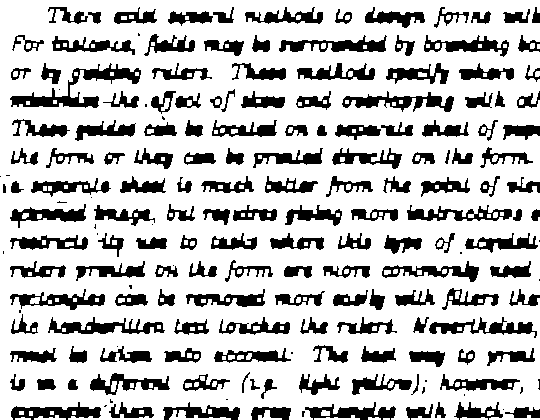 There exist several methods to design forms with
For instance, fields may be surrounded by bounding
or by guiding rulers. These methods specify where to
minimise the effect of skew and overlapping with
These guides can be located on a separate sheet of
the form or they can be printed directly on the form.
a separate sheet is much better from the point of
scanned image, but requires giving more instructions
restricts its use to tasks where this type of
rulers printed on the form are more commonly used
rectangles can be removed more easily with filters
the handwritten text touches the rulers. Nevertheless,
must be taken into account: The best way to print
is in a different color (i.e. light yellow); however,
expensive than printing gray rectangles with